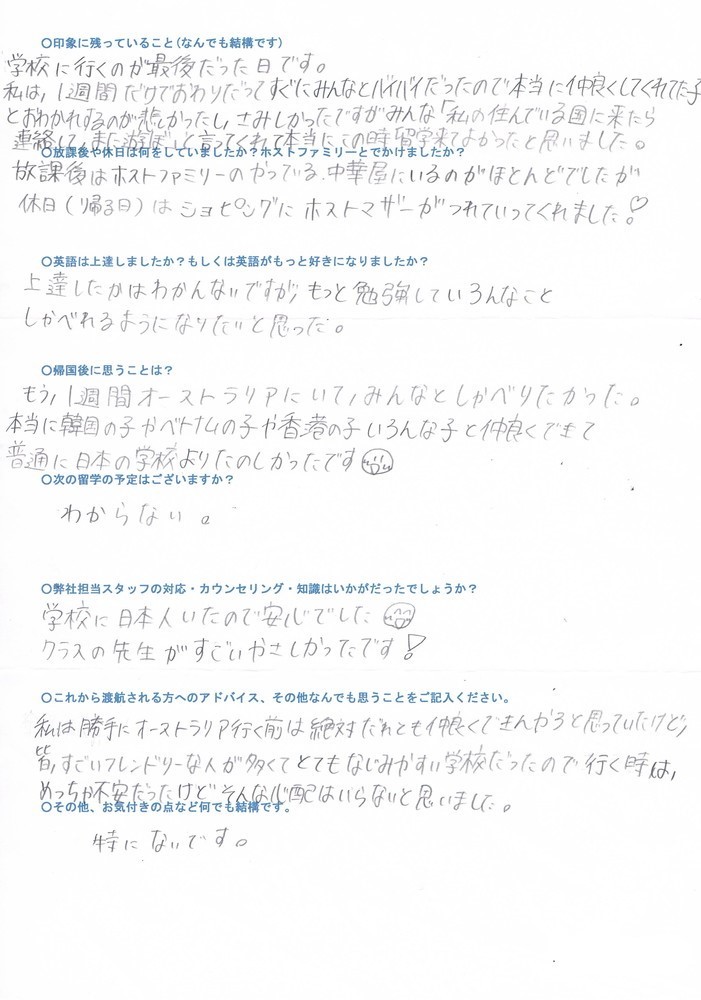 〇印象に残っていること(なんでも結構です)
学校に行くのが最後だった日です。
私は,1週間だけでおわりだってすぐにみんなとバイバイだったので本当に仲良くしてくれてた子
とおわかれするのが悲しかったし,さみしかったですがみんな「私の住んでいる国に来たら
連絡して,また遊ぼ」と言ってくれて本当にこの時留学来てよかったと思いました。
〇放課後や休日は何をしていましたか？ホストファミリーとでかけましたか？
放課後はホストファミリーのやっている中華屋にいるのがほとんどでしたが
休日(帰る日)はショピングにホストマザーがつれていってくれました!♡
〇英語は上達しましたか？もしくは英語がもっと好きになりましたか？
上達したかはわかんないですが,もっと勉強していろんなこと
しゃべれるようになりたいと思った。
〇帰国後に思うことは？
もう,1週間オーストラリアにいて,みんなとしゃべりたかった。
本当に韓国の子やベトナムの子や香港の子いろんな子と仲良くできて
普通に日本の学校よりたのしかったです
〇次の留学の予定はございますか？
わからない。
〇弊社担当スタッフの対応・カウンセリング・知識はいかがだったでしょうか？
学校に日本人いたので安心でした
クラスの先生がすごいやさしかったです!
〇これから渡航される方へのアドバイス、その他なんでも思うことをご記入ください。
私は勝手にオーストラリア行く前は絶対だれとも仲良くできんやろと思っていたけど,
皆,すごいフレンドリーな人が多くてとてもなじみやすい学校だったので行く時は,
めっちゃ不安だったけどそんな心配はいらないと思いました。
〇その他、お気付きの点など何でも結構です。
特にないです。